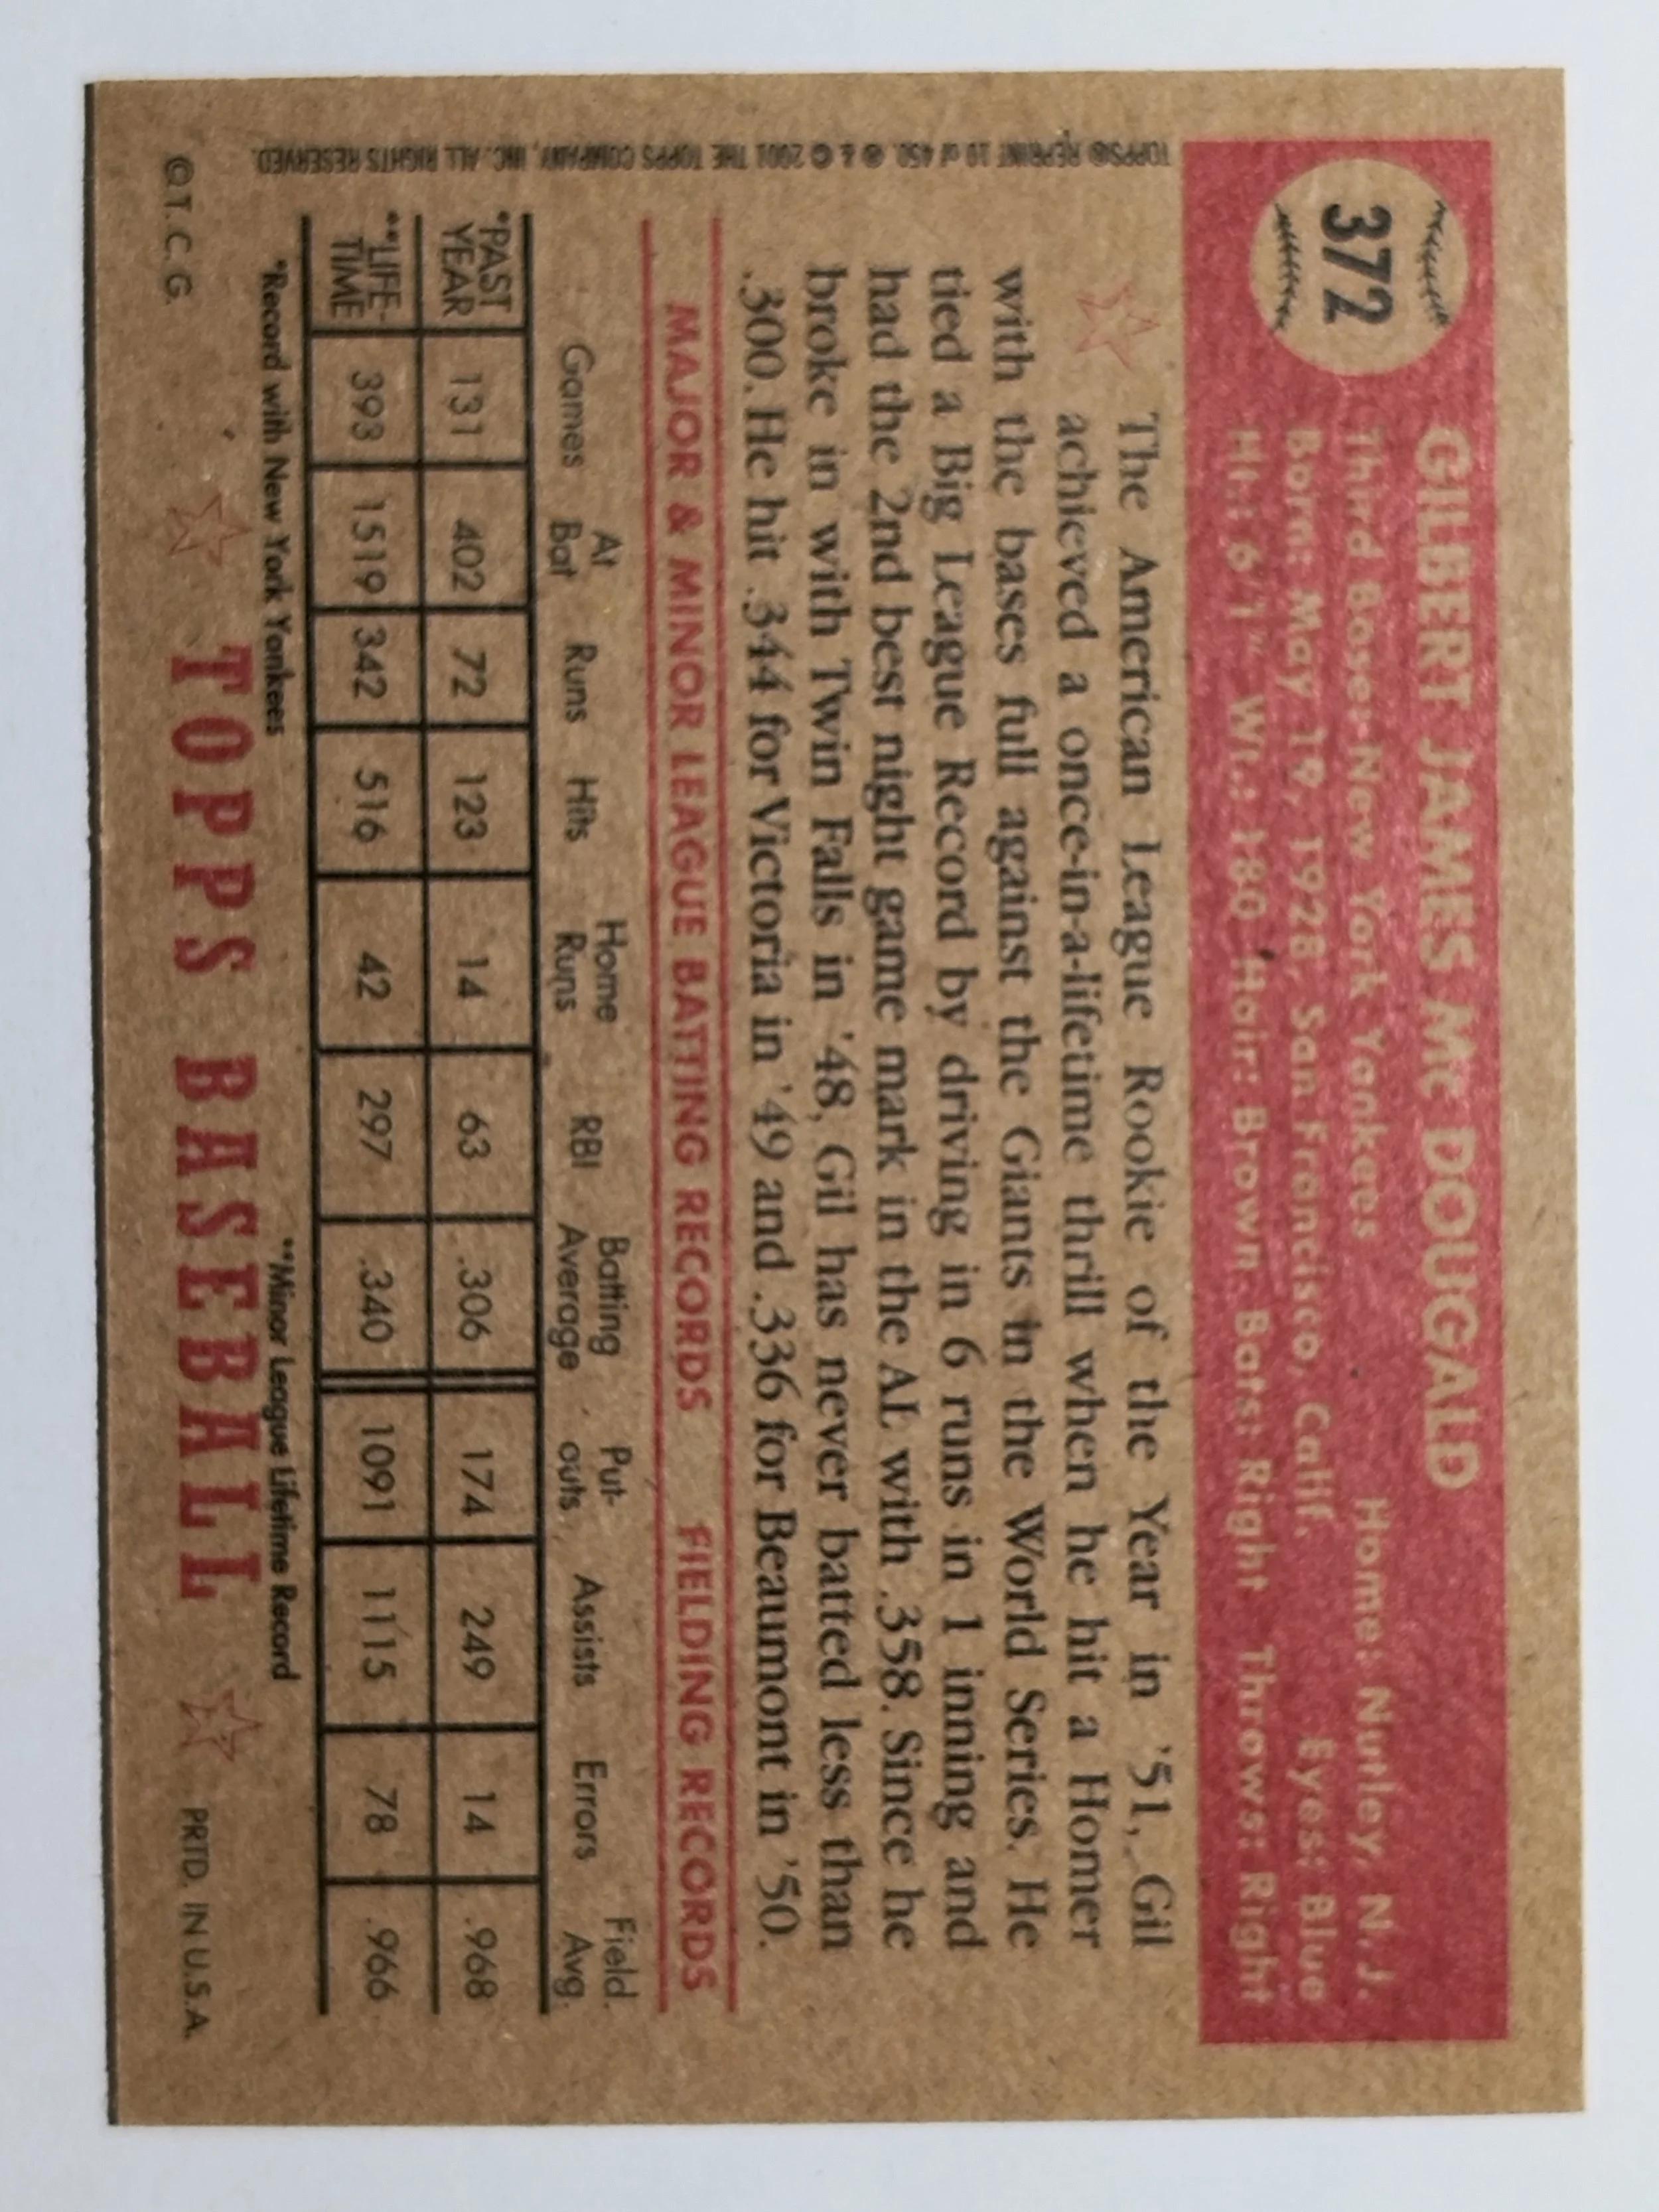 372
GILBERT JAMES Mc DOUGALD
Third Baser-New York Yankees Home: Nutley, N. J.
Born: May 19, 1928, San Francisco, Calif. Eyes: Blue
Ht.: 6'1" Wt.: 180 Hair: Brown Bats: Right Throws: Right
The American League Rookie of the Year in '51, Gil
achieved a once-in-a-lifetime thrill when he hit a Homer
with the bases full against the Giants in the World Series. He
tied a Big League Record by driving in 6 runs in 1 inning and
had the 2nd best night game mark in the AL with .358. Since he
broke in with Twin Falls in '48, Gil has never batted less than
.300. He hit .344 for Victoria in '49 and .336 for Beaumont in '50.
MAJOR & MINOR LEAGUE BATTING RECORDS FIELDING RECORDS
Games At Bat Runs Hits Home Runs RBI Batting Average Put-outs Assists Errors Field. Avg.
*PAST YEAR 131 402 72 123 14 63 .306 174 249 14 .968
**LIFE-TIME 393 1519 342 516 42 297 .340 1091 1115 78 .966
*Record with New York Yankees **Minor League Lifetime Record
© T. C. G. TOPPS BASEBALL PRTD. IN U.S.A.
TOPPS® REPRINT 10 of 450. ® & © 2001 THE TOPPS COMPANY, INC. ALL RIGHTS RESERVED.